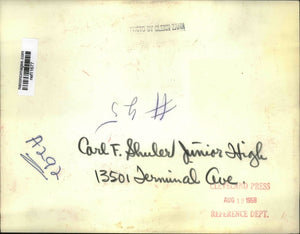 PHOTO BY GLENN ZAHN
# 45
A292
Carl F. Shuler Junior High
13501 Terminal Ave
CLEVELAND PRESS
AUG 19 1968
REFERENCE DEPT.